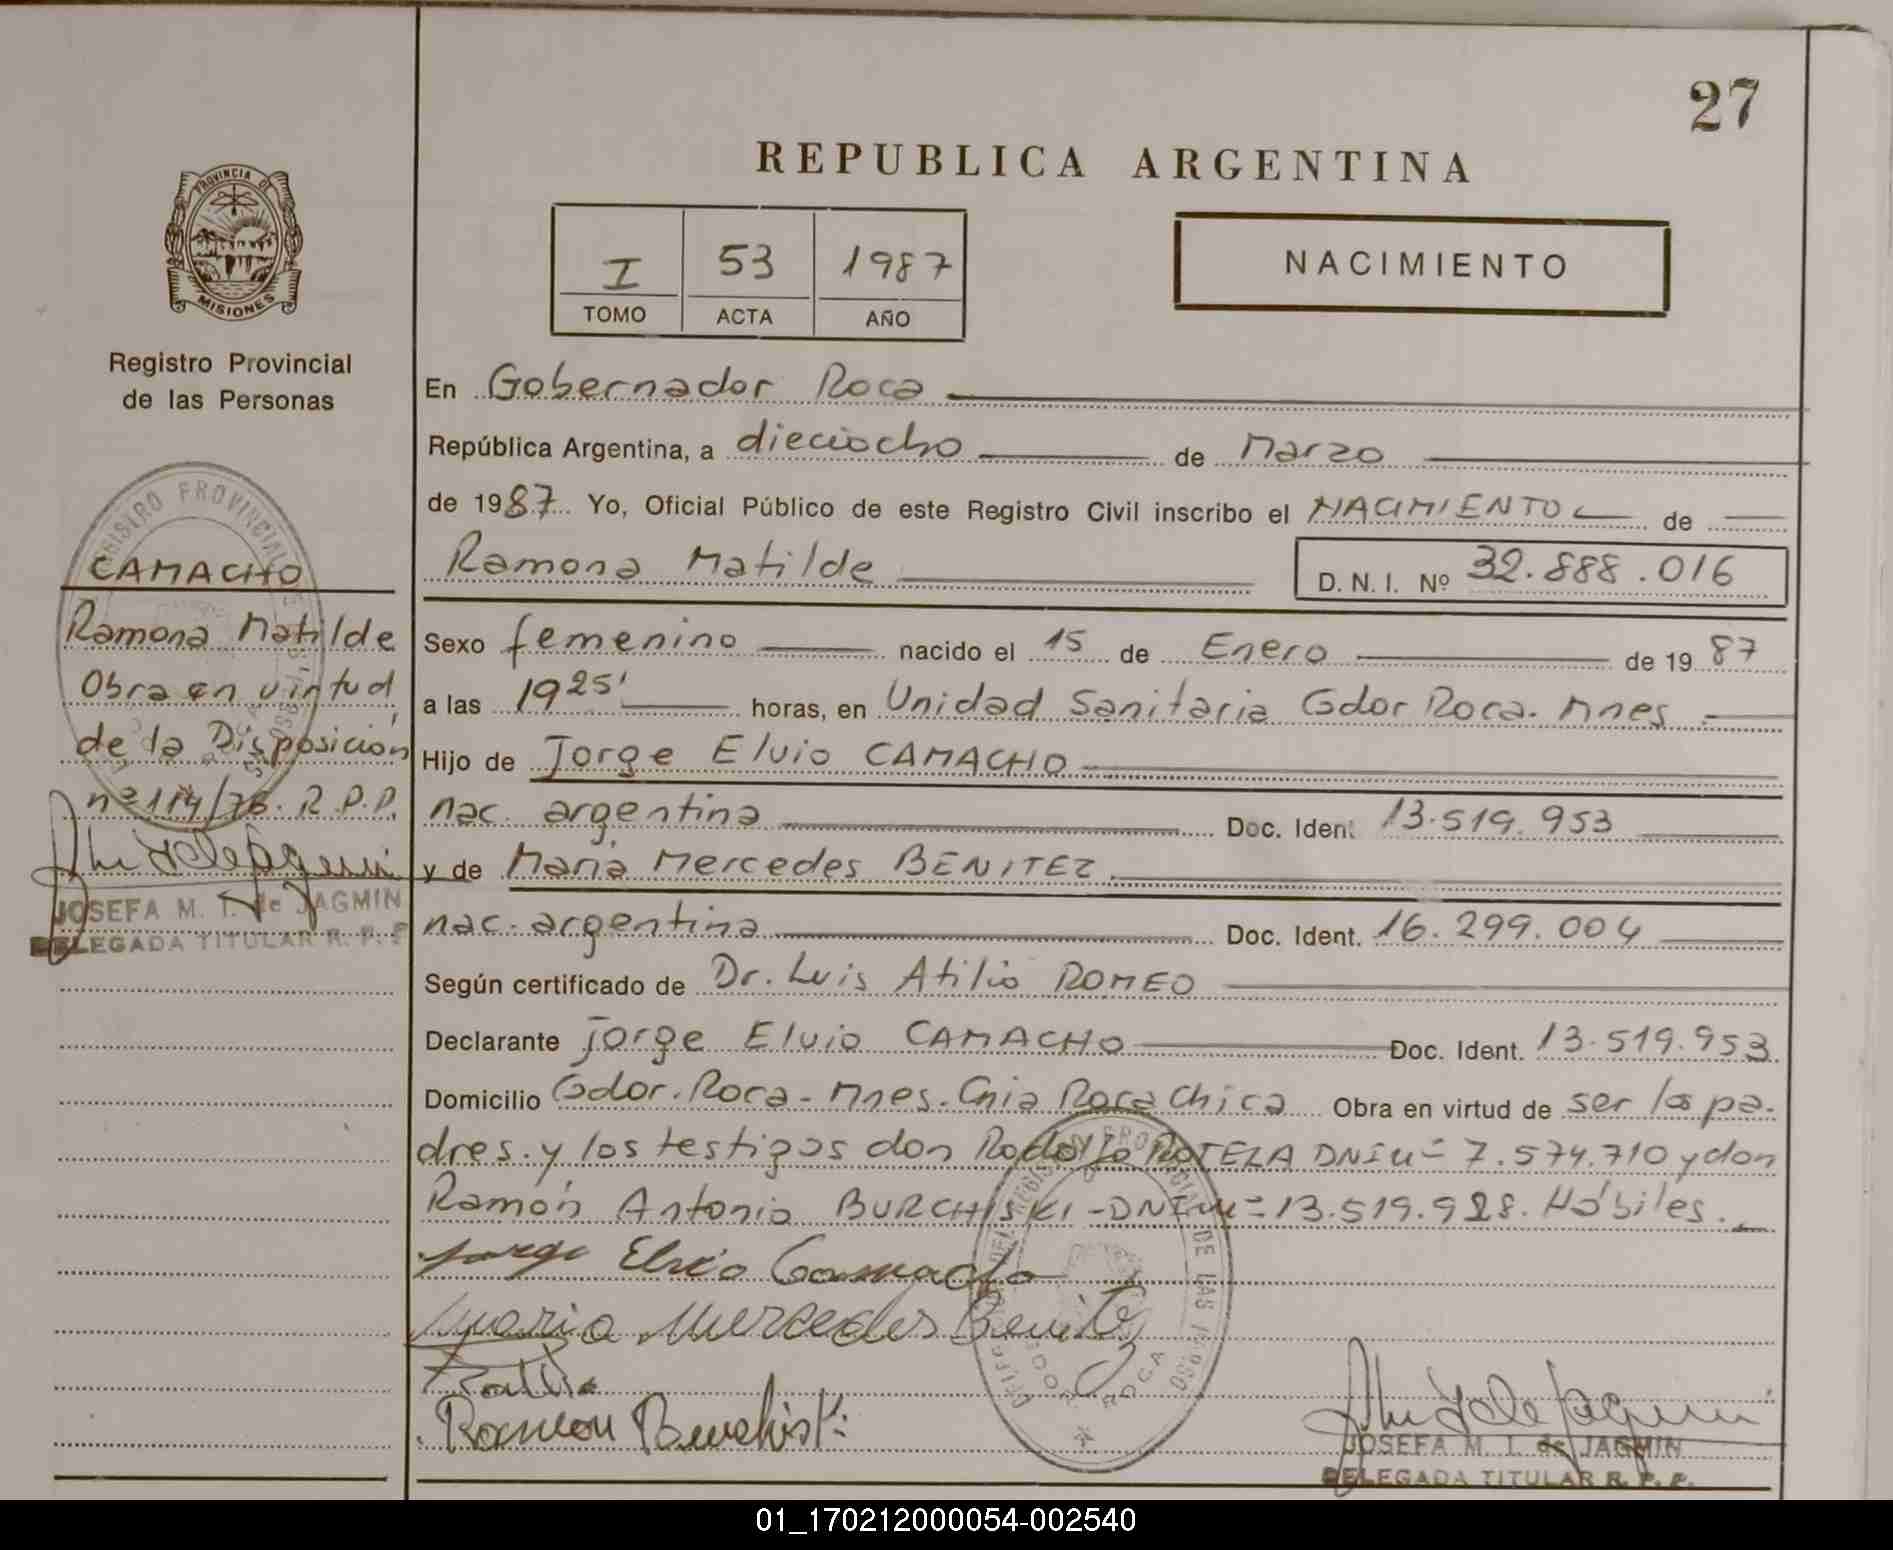 27
REPUBLICA ARGENTINA
PROVINCIA DE
MISIONES
Registro Provincial
de las Personas
I 53 1987
TOMO ACTA AÑO
NACIMIENTO
En Gobernador Roca
República Argentina, a dieciocho de Marzo
de 1987 Yo, Oficial Público de este Registro Civil inscribo el NACIMIENTO de
Ramona Matilde D.N.I. Nº 32.888.016
Sexo femenino nacido el 15 de Enero de 19 87
a las 1925' horas, en Unidad Sanitaria Gdor Roca. Mnes
Hijo de Jorge Elvio CAMACHO
nac. argentina Doc. Ident 13.519.953
y de Maria Mercedes BENITEZ
nac. argentina Doc. Ident. 16.299.004
Según certificado de Dr. Luis Atilio ROMEO
Declarante Jorge Elvio CAMACHO Doc. Ident. 13.519.953
Domicilio Gdor. Roca - Mnes. Cnia Roca Chica Obra en virtud de ser los pa-
dres y los testigos don Rodolfo ROTELA DNI nº 7.574.710 y don
Ramón Antonio BURCHISKI - DNI nº 13.519.928. Hábiles.
Jorge Elvio Camacho
Maria Mercedes Benitez
Ramon Burchiski
JOSEFA M. I. de JAGMIN
DELEGADA TITULAR R. P. P.
CAMACHO
Ramona Matilde
Obra en virtud
de la Disposición
nº 114/76. R.P.P.
JOSEFA M. I. de JAGMIN
DELEGADA TITULAR R. P. P
REGISTRO PROVINCIAL DE LAS PERSONAS
ROCA
01_170212000054-002540